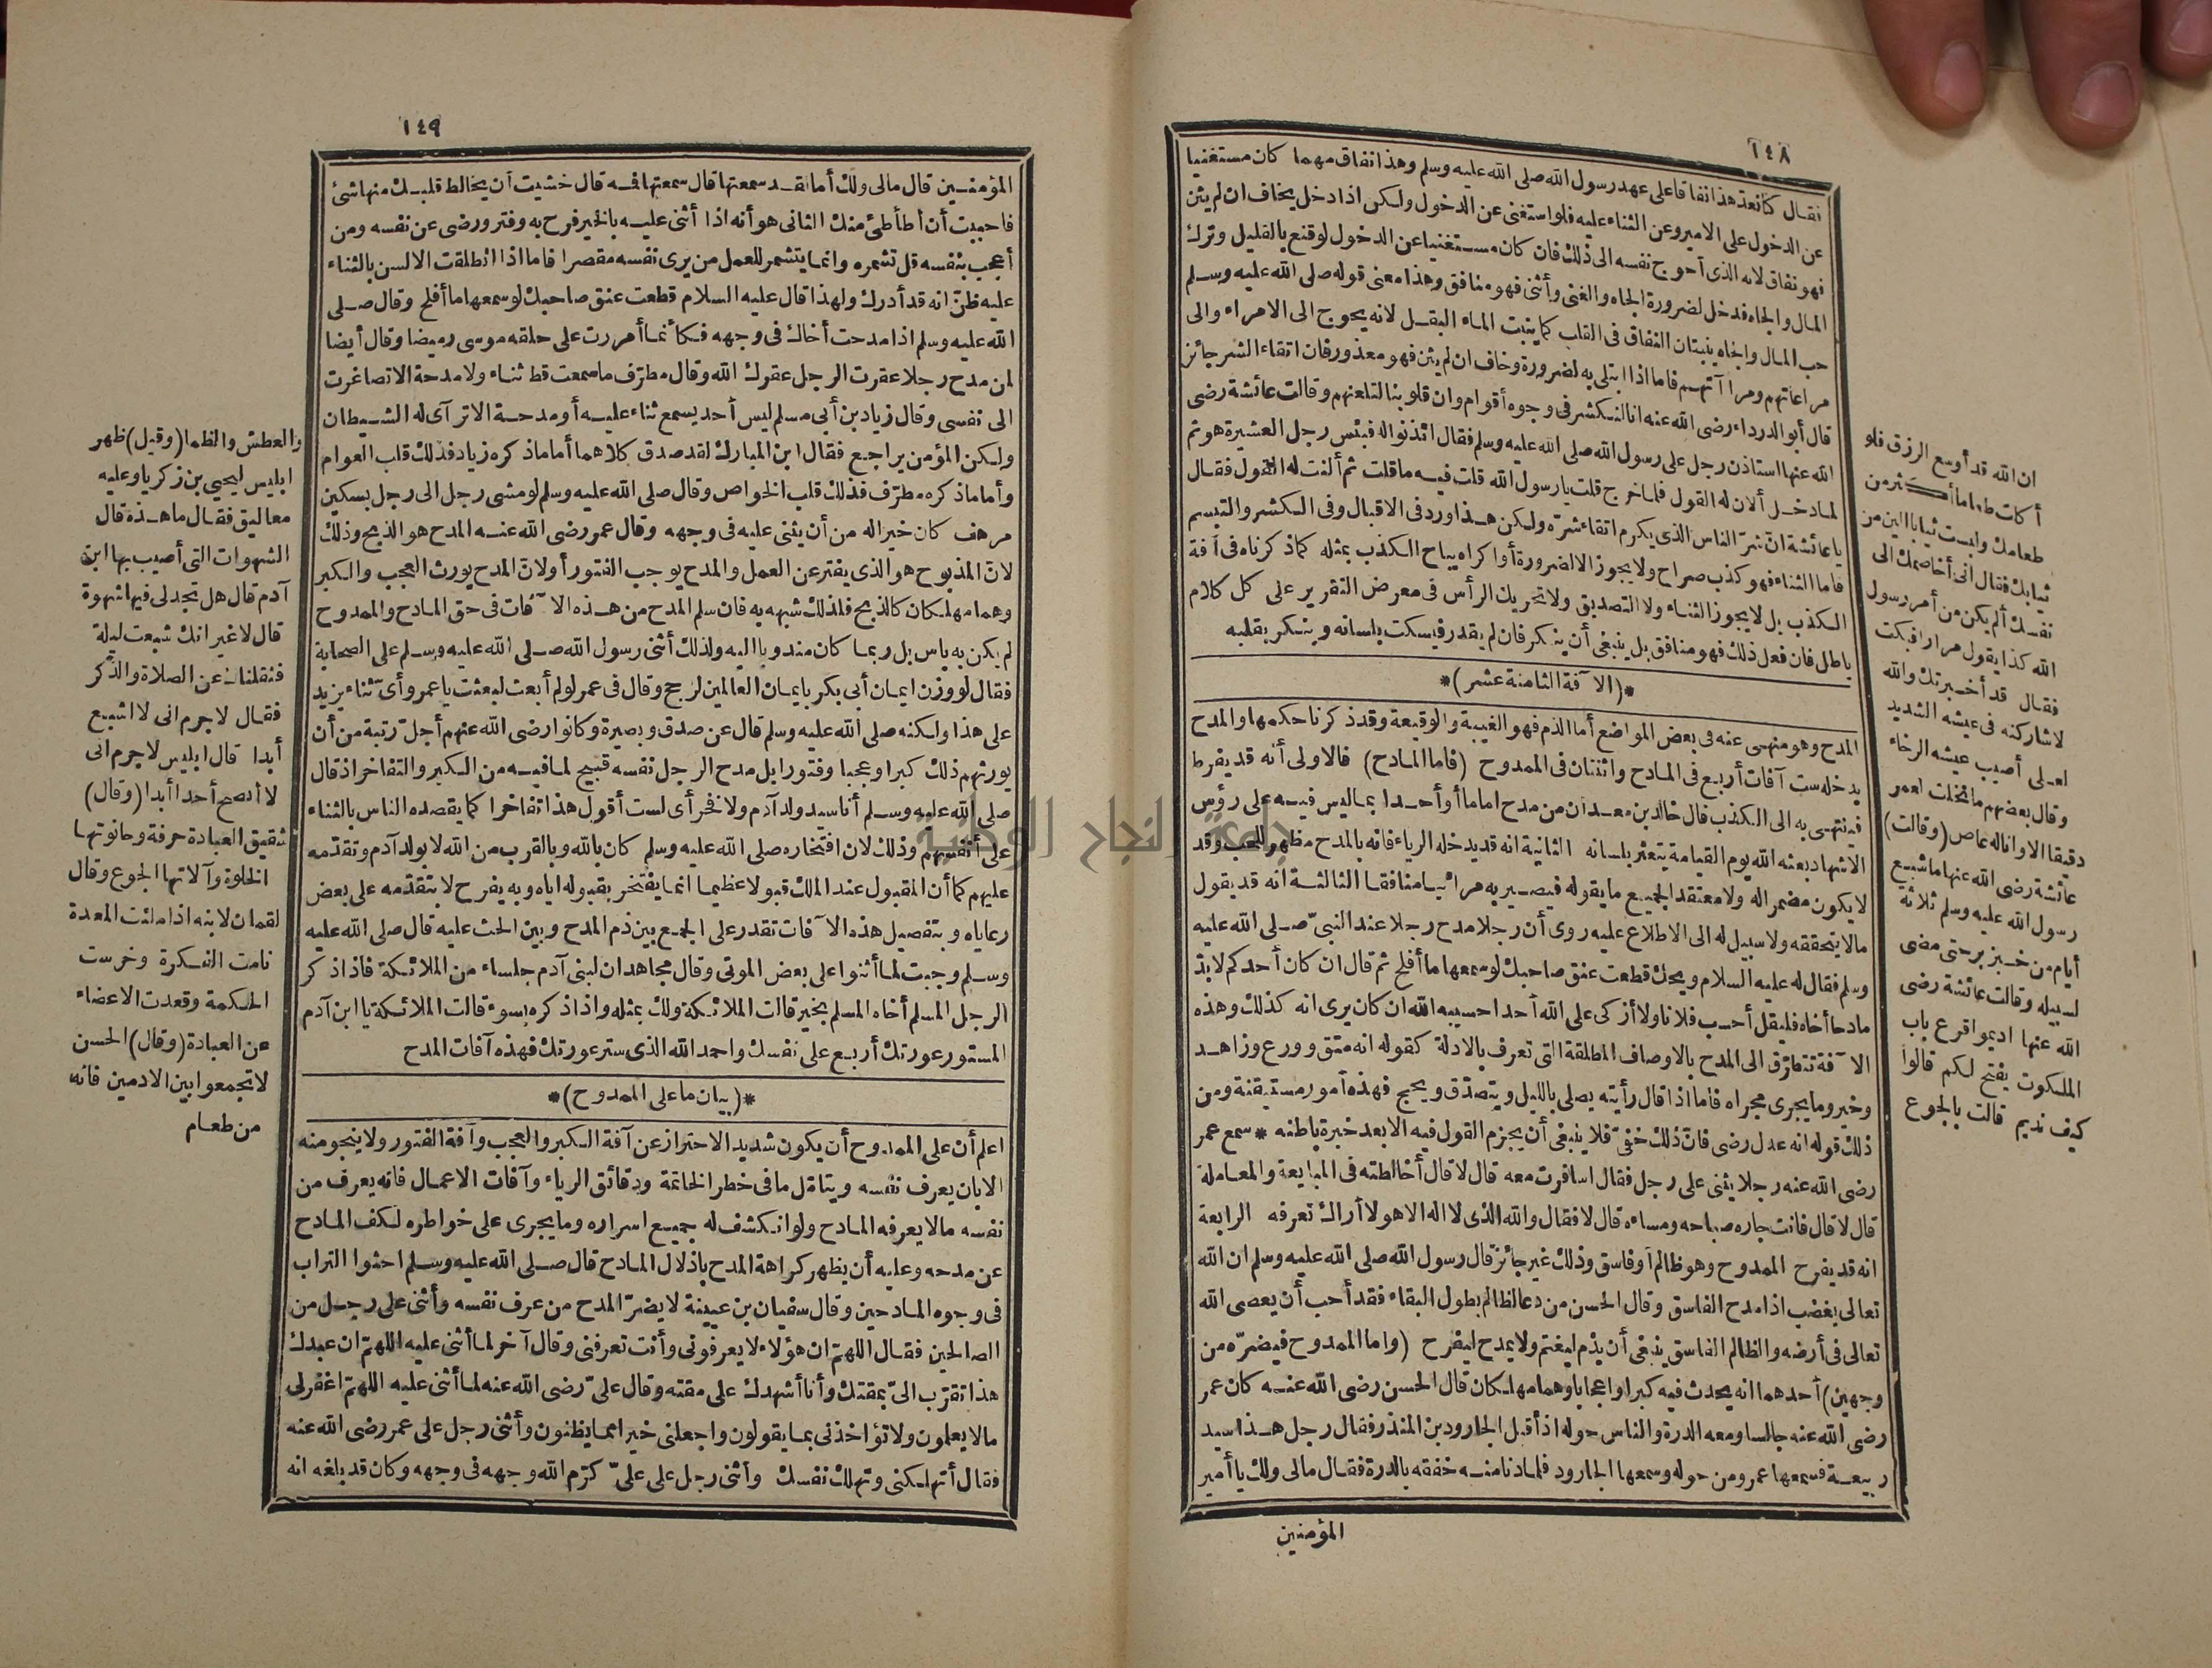 ١٤٨
فقال كنا نعد هذا نفاقا على عهد رسول الله صلى الله عليه وسلم وهذا نفاق مهما كان مستغنيا
عن الدخول على الامير وعن الثناء عليه فلو استغنى عن الدخول ولكن اذا دخل يخاف ان لم يثن
فهو نفاق لانه الذى أحوج نفسه الى ذلك فان كان مستغنيا عن الدخول لو قنع بالقليل وترك
المال والجاه فدخل لضرورة الجاه والغنى وأثنى فهو منافق وهذا معنى قوله صلى الله عليه وسلم
حب المال والجاه ينبتان النفاق فى القلب كما ينبت الماء البقل لانه يحوج الى الامراء والى
مراعاتهم ومراآتهم فاما اذا ابتلى به لضرورة وخاف ان لم يثن فهو معذور فان اتقاء الشر جائز
قال أبو الدرداء رضى الله عنه انا لنكشر فى وجوه أقوام وان قلوبنا لتلعنهم وقالت عائشة رضى
الله عنها استاذن رجل على رسول الله صلى الله عليه وسلم فقال ائذنوا له فبئس رجل العشيرة هو ثم
لما دخل ألان له القول فلما خرج قلت يا رسول الله قلت فيه ما قلت ثم ألنت له القول فقال
يا عائشة ان شرّ الناس الذى يكرم اتقاء شرّه ولكن هذا ورد فى الاقبال وفى الكشر والتبسم
فاما الثناء فهو كذب صراح ولا يجوز الا لضرورة أو اكراه يباح الكذب بمثله كما ذكرناه فى آفة
الكذب بل لا يجوز الثناء ولا التصديق ولا تحريك الرأس فى معرض التقرير على كل كلام
باطل فان فعل ذلك فهو منافق بل ينبغى أن ينكر فان لم يقدر فيسكت بلسانه وينكر بقلبه
*(الآفة الثامنة عشر)*
المدح وهو منهى عنه فى بعض المواضع أما الذم فهو الغيبة والوقيعة وقد ذكرنا حكمها والمدح
يدخله ست آفات أربع فى المادح واثنتان فى الممدوح (فاما المادح) فالاولى أنه قد يفرط
فينتهى به الى الكذب قال خالد بن معدان من مدح اماما أو أحدا بما ليس فيه على رؤس
الاشهاد بعثه الله يوم القيامة يتعثر بلسانه الثانية انه قد يدخله الرياء فانه بالمدح مظهر للحب وقد
لا يكون مضمرا له ولا معتقد الجميع ما يقوله فيصير به مرائيا منافقا الثالثة انه قد يقول
مالا يتحققه ولا سبيل له الى الاطلاع عليه روى أن رجلا مدح رجلا عند النبىّ صلى الله عليه
وسلم فقال له عليه السلام ويحك قطعت عنق صاحبك لو سمعها ما أفلح ثم قال ان كان أحدكم لابدّ
مادحا أخاه فليقل أحسب فلانا ولا أزكى على الله أحدا حسيبه الله ان كان يرى انه كذلك وهذه
الآفة تتطرّق الى المدح بالاوصاف المطلقة التى تعرف بالادلة كقوله انه متق وورع وزاهد
وخير وما يجرى مجراه فاما اذا قال رأيته يصلى بالليل ويتصدّق ويحج فهذه أمور مستيقنة ومن
ذلك قوله انه عدل رضى فان ذلك خفىّ فلا ينبغى أن يجزم القول فيه الا بعد خبرة باطنه * سمع عمر
رضى الله عنه رجلا يثنى على رجل فقال اسافرت معه قال لا قال أخالطته فى المبايعة والمعاملة
قال لا قال فانت جاره صباحه ومساءه قال لا فقال والله الذى لا اله الا هو لا أراك تعرفه الرابعة
انه قد يفرح الممدوح وهو ظالم أو فاسق وذلك غير جائز قال رسول الله صلى الله عليه وسلم ان الله
تعالى يغضب اذا مدح الفاسق وقال الحسن من دعا لظالم بطول البقاء فقد أحب أن يعصى الله
تعالى فى أرضه والظالم الفاسق ينبغى أن يذم ليغتم ولا يمدح ليفرح (واما الممدوح فيضرّه من
وجهين) أحدهما انه يحدث فيه كبرا واعجابا وهما مهلكان قال الحسن رضى الله عنه كان عمر
رضى الله عنه جالسا ومعه الدرة والناس حوله اذ أقبل الجارود بن المنذر فقال رجل هذا سيد
ربيعة فسمعها عمرو من حوله وسمعها الجارود فلما دنا منه خفقه بالدرة فقال مالى ولك يا أمير
المؤمنين
ان الله قد أوسع الرزق فلو
أكلت طعاما أكثر من
طعامك ولبست ثيابا ألين من
ثيابك فقال انى أخاصمك الى
نفسك ألم يكن من أمر رسول
الله كذا يقول مرارا فبكت
فقال قد أخبرتك والله
لاشاركنه فى عيشه الشديد
لعلى أصيب عيشه الرخاء
وقال بعضهم ما نخلت لعمر
دقيقا الا وانا له عاص (وقالت)
عائشة رضى الله عنها ما شبع
رسول الله عليه وسلم ثلاثة
أيام من خبز بر حتى مضى
لسبيله وقالت عائشة رضى
الله عنها اديموا قرع باب
الملكوت يفتح لكم قالوا
كيف نديم قالت بالجوع
١٤٩
المؤمنين قال مالى ولك أما لقد سمعتها قال سمعتها فمه قال خشيت أن يخالط قلبك منها شئ
فاحببت أن أطأطئ منك الثانى هو أنه اذا أثنى عليه بالخير فرح به وفتر ورضى عن نفسه ومن
أعجب بنفسه قل تشمره وانما يتشمر للعمل من يرى نفسه مقصرا فاما اذا انطلقت الالسن بالثناء
عليه ظنّ انه قد أدرك ولهذا قال عليه السلام قطعت عنق صاحبك لو سمعها ما أفلح وقال صلى
الله عليه وسلم اذا مدحت أخاك فى وجهه فكأنما أمررت على حلقه موسى رميضا وقال أيضا
لمن مدح رجلا عقرت الرجل عقرك الله وقال مطرّف ما سمعت قط ثناء ولا مدحة الا تصاغرت
الى نفسى وقال زياد بن أبى مسلم ليس أحد يسمع ثناء عليه أو مدحة الا تراآى له الشيطان
ولكن المؤمن يراجع فقال ابن المبارك لقد صدق كلاهما أما ماذكره زياد فذلك قلب العوام
وأما ماذكره مطرّف فذلك قلب الخواص وقال صلى الله عليه وسلم لو مشى رجل الى رجل بسكين
مرهف كان خيرا له من أن يثنى عليه فى وجهه وقال عمر رضى الله عنه المدح هو الذبح وذلك
لانّ المذبوح هو الذى يفتر عن العمل والمدح يوجب الفتور أو لانّ المدح يورث العجب والكبر
وهما مهلكان كالذبح فلذلك شبهه به فان سلم المدح من هذه الآفات فى حق المادح والممدوح
لم يكن به باس بل ربما كان مندوبا اليه ولذلك أثنى رسول الله صلى الله عليه وسلم على الصحابة
فقال لو وزن ايمان أبى بكر بايمان العالمين لرجح وقال فى عمر لو لم أبعث لبعثت يا عمر وأىّ ثناء يزيد
على هذا ولكنه صلى الله عليه وسلم قال عن صدق وبصيرة وكانوا رضى الله عنهم أجلّ رتبة من أن
يورثهم ذلك كبرا وعجبا وفتورا بل مدح الرجل نفسه قبيح لما فيه من الكبر والتفاخر اذ قال
صلى الله عليه وسلم أنا سيد ولد آدم ولا فخر أى لست أقول هذا تفاخرا كما يقصده الناس بالثناء
على أنفسهم وذلك لان افتخاره صلى الله عليه وسلم كان بالله وبالقرب من الله لا بولد آدم وتقدّمه
عليهم كما أن المقبول عند الملك قبولا عظيما انما يفتخر بقبوله اياه وبه يفرح لا بتقدّمه على بعض
رعاياه وبتفصيل هذه الآفات تقدر على الجمع بين ذم المدح وبين الحث عليه قال صلى الله عليه
وسلم وجبت لما أثنوا على بعض الموتى وقال مجاهد ان لبنى آدم جلساء من الملائكة فاذا ذكر
الرجل المسلم أخاه المسلم بخير قالت الملائكة ولك بمثله واذا ذكره بسوء قالت الملائكة يا ابن آدم
المستور عورتك أربع على نفسك واحمد الله الذى ستر عورتك فهذه آفات المدح
*(بيان ما على الممدوح)*
اعلم أن على الممدوح أن يكون شديد الاحتراز عن آفة الكبر والعجب وآفة الفتور ولا ينجو منه
الا بان يعرف نفسه ويتامّل ما فى خطر الخاتمة ودقائق الرياء وآفات الاعمال فانه يعرف من
نفسه مالا يعرفه المادح ولو انكشف له جميع اسراره وما يجرى على خواطره لكف المادح
عن مدحه وعليه أن يظهر كراهة المدح باذلال المادح قال صلى الله عليه وسلم احثوا التراب
فى وجوه المادحين وقال سفيان بن عيينة لا يضرّ المدح من عرف نفسه وأثنى على رجل من
الصالحين فقال اللهمّ ان هؤلاء لا يعرفونى وأنت تعرفنى وقال آخر لما أثنى عليه اللهمّ ان عبدك
هذا تقرّب الىّ بمقتك وأنا أشهدك على مقته وقال علىّ رضى الله عنه لما أثنى عليه اللهمّ اغفر لى
مالا يعلمون ولا تؤاخذنى بما يقولون واجعلنى خيرا مما يظنون وأثنى رجل على عمر رضى الله عنه
فقال أتهلكنى وتهلك نفسك وأثنى رجل على علىّ كرّم الله وجهه فى وجهه وكان قد بلغه انه
والعطش والظما (وقيل) ظهر
ابليس ليحيى بن زكريا وعليه
معاليق فقال ما هذه قال
الشهوات التى أصيب بها ابن
آدم قال هل تجد لى فيها شهوة
قال لا غير انك شبعت ليلة
فثقلناك عن الصلاة والذكر
فقال لا جرم انى لا اشبع
أبدا قال ابليس لا جرم انى
لا أنصح أحدا أبدا (وقال)
شقيق العبادة حرفة وحانوتها
الخلوة وآلاتها الجوع وقال
لقمان لابنه اذا ملئت المعدة
نامت الفكرة وخرست
الحكمة وقعدت الاعضاء
عن العبادة (وقال) الحسن
لا تجمعوا بين الادمين فانه
من طعام
جامعة النجاح الوطنية